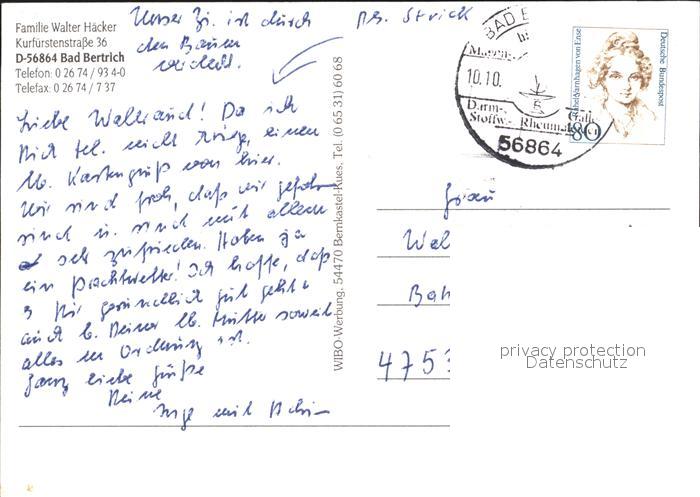 Familie Walter Häcker
Kurfürstenstraße 36
D-56864 Bad Bertrich
Telefon: 0 26 74 / 93 4-0
Telefax: 0 26 74 / 7 37
Unser Zi. ist durch
den Baum
verdeckt.
Liebe Waltraud! Da ich
Dich tel. nicht kriege, einen
lb. Kartengruß von hier.
Wir sind froh, daß wir gefahren
sind u. sind mit allem
sehr zufrieden. Haben ja
ein Prachtwetter! Ich hoffe, daß
es Dir gesundheitl. gut geht u.
auch b. Deiner lb. Mutter soweit
alles in Ordnung ist.
Ganz liebe Grüße
Deine
Inge mit
WIBO-Werbung, 54470 Bernkastel-Kues, Tel. (0 65 31) 60 68
Strick
BAD B
10.10.
Darm-
Stoffw.- Rheuma
56864
Rahel Varnhagen von Ense
Deutsche Bundespost
80
Frau
Wal
Bah
475
privacy protection
Datenschutz